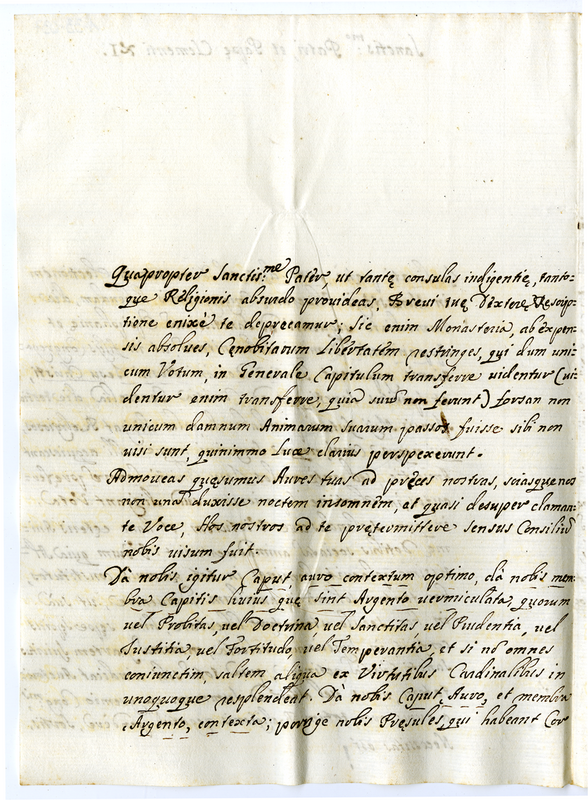 Quapropter Sanctis.me Patèr, ut tantę consulas indigentię, tanto-
que Religionis absurdo prouideas, Breui tuę Dextere
tione enixè te deprecamur; Sic enim Monasteria, ab expen-
sis absolues, Cęnobitarum Libertatèm restringes, qui dum uni-
cum Votum, in Generale Capitulum transferre uidentur (ui-
dentur enim transferre, quia suũ non ferunt) forsan non
unicum damnum Animarum suarum passos fuisse sibi non
uisi sunt, quinimmo Luce clarius perspexerunt.
Admoueas quęsumus Aures tuas ad pręces nostras, sciasque nos
non unã duxisse noctem insomnèm, et quasi desuper claman-
te Voce, Hos nostros ad te prętermittere sensus Consiliũ
nobis uisum fuit.
Dà nobis igitur Caput, auro contextum optimo, dà nobis mem-
bra Capitis huius quę sint Argento uermiculata, quorum
uel Probitas, uel Doctrina, uel Sanctitas, uel Prudentia, uel
Iustitia, uel Fortitudo, uel Temperantia, et si nõ omnes
coniunctim, saltem aliqua ex Virtutibus Cardinalibus in
unoquoque resplendeat. Dà nobis Caput Auro, et membra
Argento, contexta; porrige nobis Pręsules, qui habeant Cor